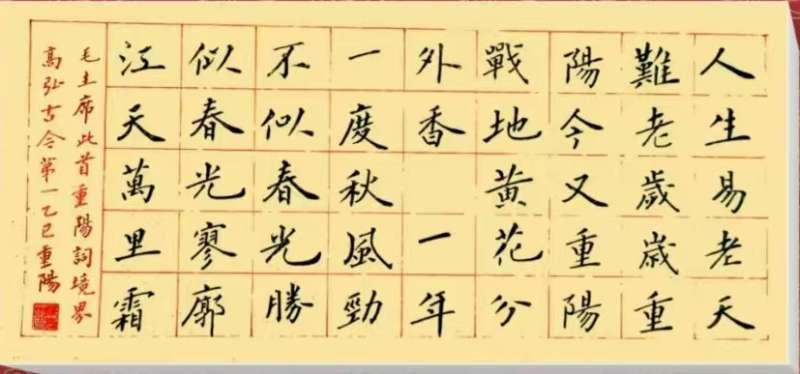 人生易老天
難老歲歲重
陽今又重陽
戰地黃花分
外香 一年
一度秋風勁
不似春光勝
似春光寥廓
江天萬里霜
毛主席此首重陽詞境界
高弘古今第一乙巳重陽